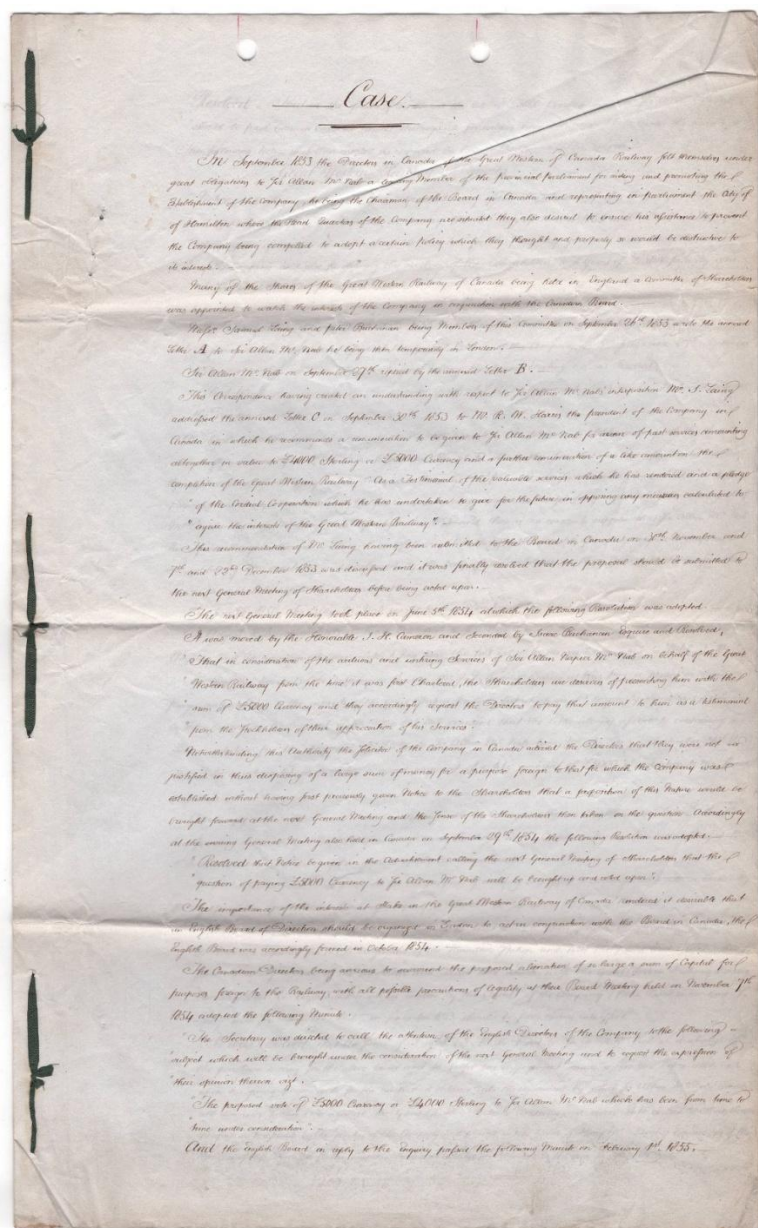 Case.
In September 1853 the Directors in Canada of the Great Western of Canada Railway felt themselves under
great obligations to Sir Allan Mc Nab a leading Member of the Provincial Parliament for aiding and promoting the
Establishment of the Company, he being the Chairman of the Board in Canada and representing in parliament the City of
of Hamilton where the Head Quarters of the Company are situate they also desired to ensure his assistance to prevent
the Company being compelled to adopt a certain Policy which they thought and properly so would be destructive to
its interests.
Many of the Shares of the Great Western Railway of Canada being held in England a Committee of Shareholders
was appointed to watch the interests of the Company in conjunction with the Canadian Board.
Messrs Samuel Laing and Peter Buchanan being Members of this Committee on September 26th 1853 wrote the annexed
Letter A to Sir Allan Mc Nab he being then temporarily in London.
Sir Allan Mc Nab on September 27th replied by the annexed Letter B.
This Correspondence having created an understanding with respect to Sir Allan Mc Nab's interposition Mr. S. Laing
addressed the annexed Letter C on September 30th 1853 to Mr. R. W. Harris the president of the Company in
Canada in which he recommends a remuneration to be given to Sir Allan Mc Nab for arrear of past services amounting
altogether in value to £4000 Sterling or £5000 Currency and a further remuneration of a like amount on the
completion of the Great Western Railway "As a Testimonial of the valuable services which he has rendered and a pledge
" of the Cordial Cooperation which he has undertaken to give for the future in opposing any measures calculated to
" injure the interests of the Great Western Railway".
This recommendation of Mr Laing having been submitted to the Board in Canada on November and
7th and December 1853 was discussed and it was finally resolved that the proposal should be submitted to
the next General Meeting of Shareholders before being acted upon.
The next General Meeting took place on June 5th 1854 at which the following Resolution was adopted.
It was moved by the Honorable J. H. Cameron and Seconded by Isaac Buchanan Esquire and Resolved,
" That in consideration of the arduous and untiring Services of Sir Allan Napier Mc Nab on behalf of the Great
" Western Railway from the time it was first Chartered, the Shareholders are desirous of presenting him with the
" sum of £5000 Currency and they accordingly request the Directors to pay that amount to him as a testimonial
" from the Shareholders of their appreciation of his Services".
Notwithstanding this Authority the Solicitor of the Company in Canada advised the Directors that they were not
justified in thus disposing of a large sum of money for a purpose foreign to that for which the Company was
established without having first previously given Notice to the Shareholders that a proposition of this Nature would be
brought forward at the next General Meeting and the Sense of the Shareholders then taken on the question. Accordingly
at the ensuing General Meeting also held in Canada on September 29th 1854 the following Resolution was adopted.
" Resolved that Notice be given in the Advertisement calling the next General Meeting of Shareholders that the
" question of paying £5000 Currency to Sir Allan Mc Nab will be brought up and acted upon".
The importance of the interests at Stake in the Great Western Railway of Canada rendered it desirable that
an English Board of Direction should be organized in London to act in conjunction with the Board in Canada, the
English Board was accordingly formed in October 1854.
The Canadian Directors being anxious to surround the proposed alienation of so large a sum of Capital for
purposes foreign to the Railway, with all possible precautions of legality at their Board Meeting held on November 7th
1854 adopted the following Minute.
" The Secretary was directed to call the attention of the English Directors of the Company to the following
" subject which will be brought under the consideration of the next General Meeting and to request the expression of
" their opinion thereon vizt.
" The proposed vote of £5000 Currency or £4000 Sterling to Sir Allan Mc Nab which has been from time to
" time under consideration".
And the English Board in reply to this Enquiry passed the following Minute on February 1st. 1855.